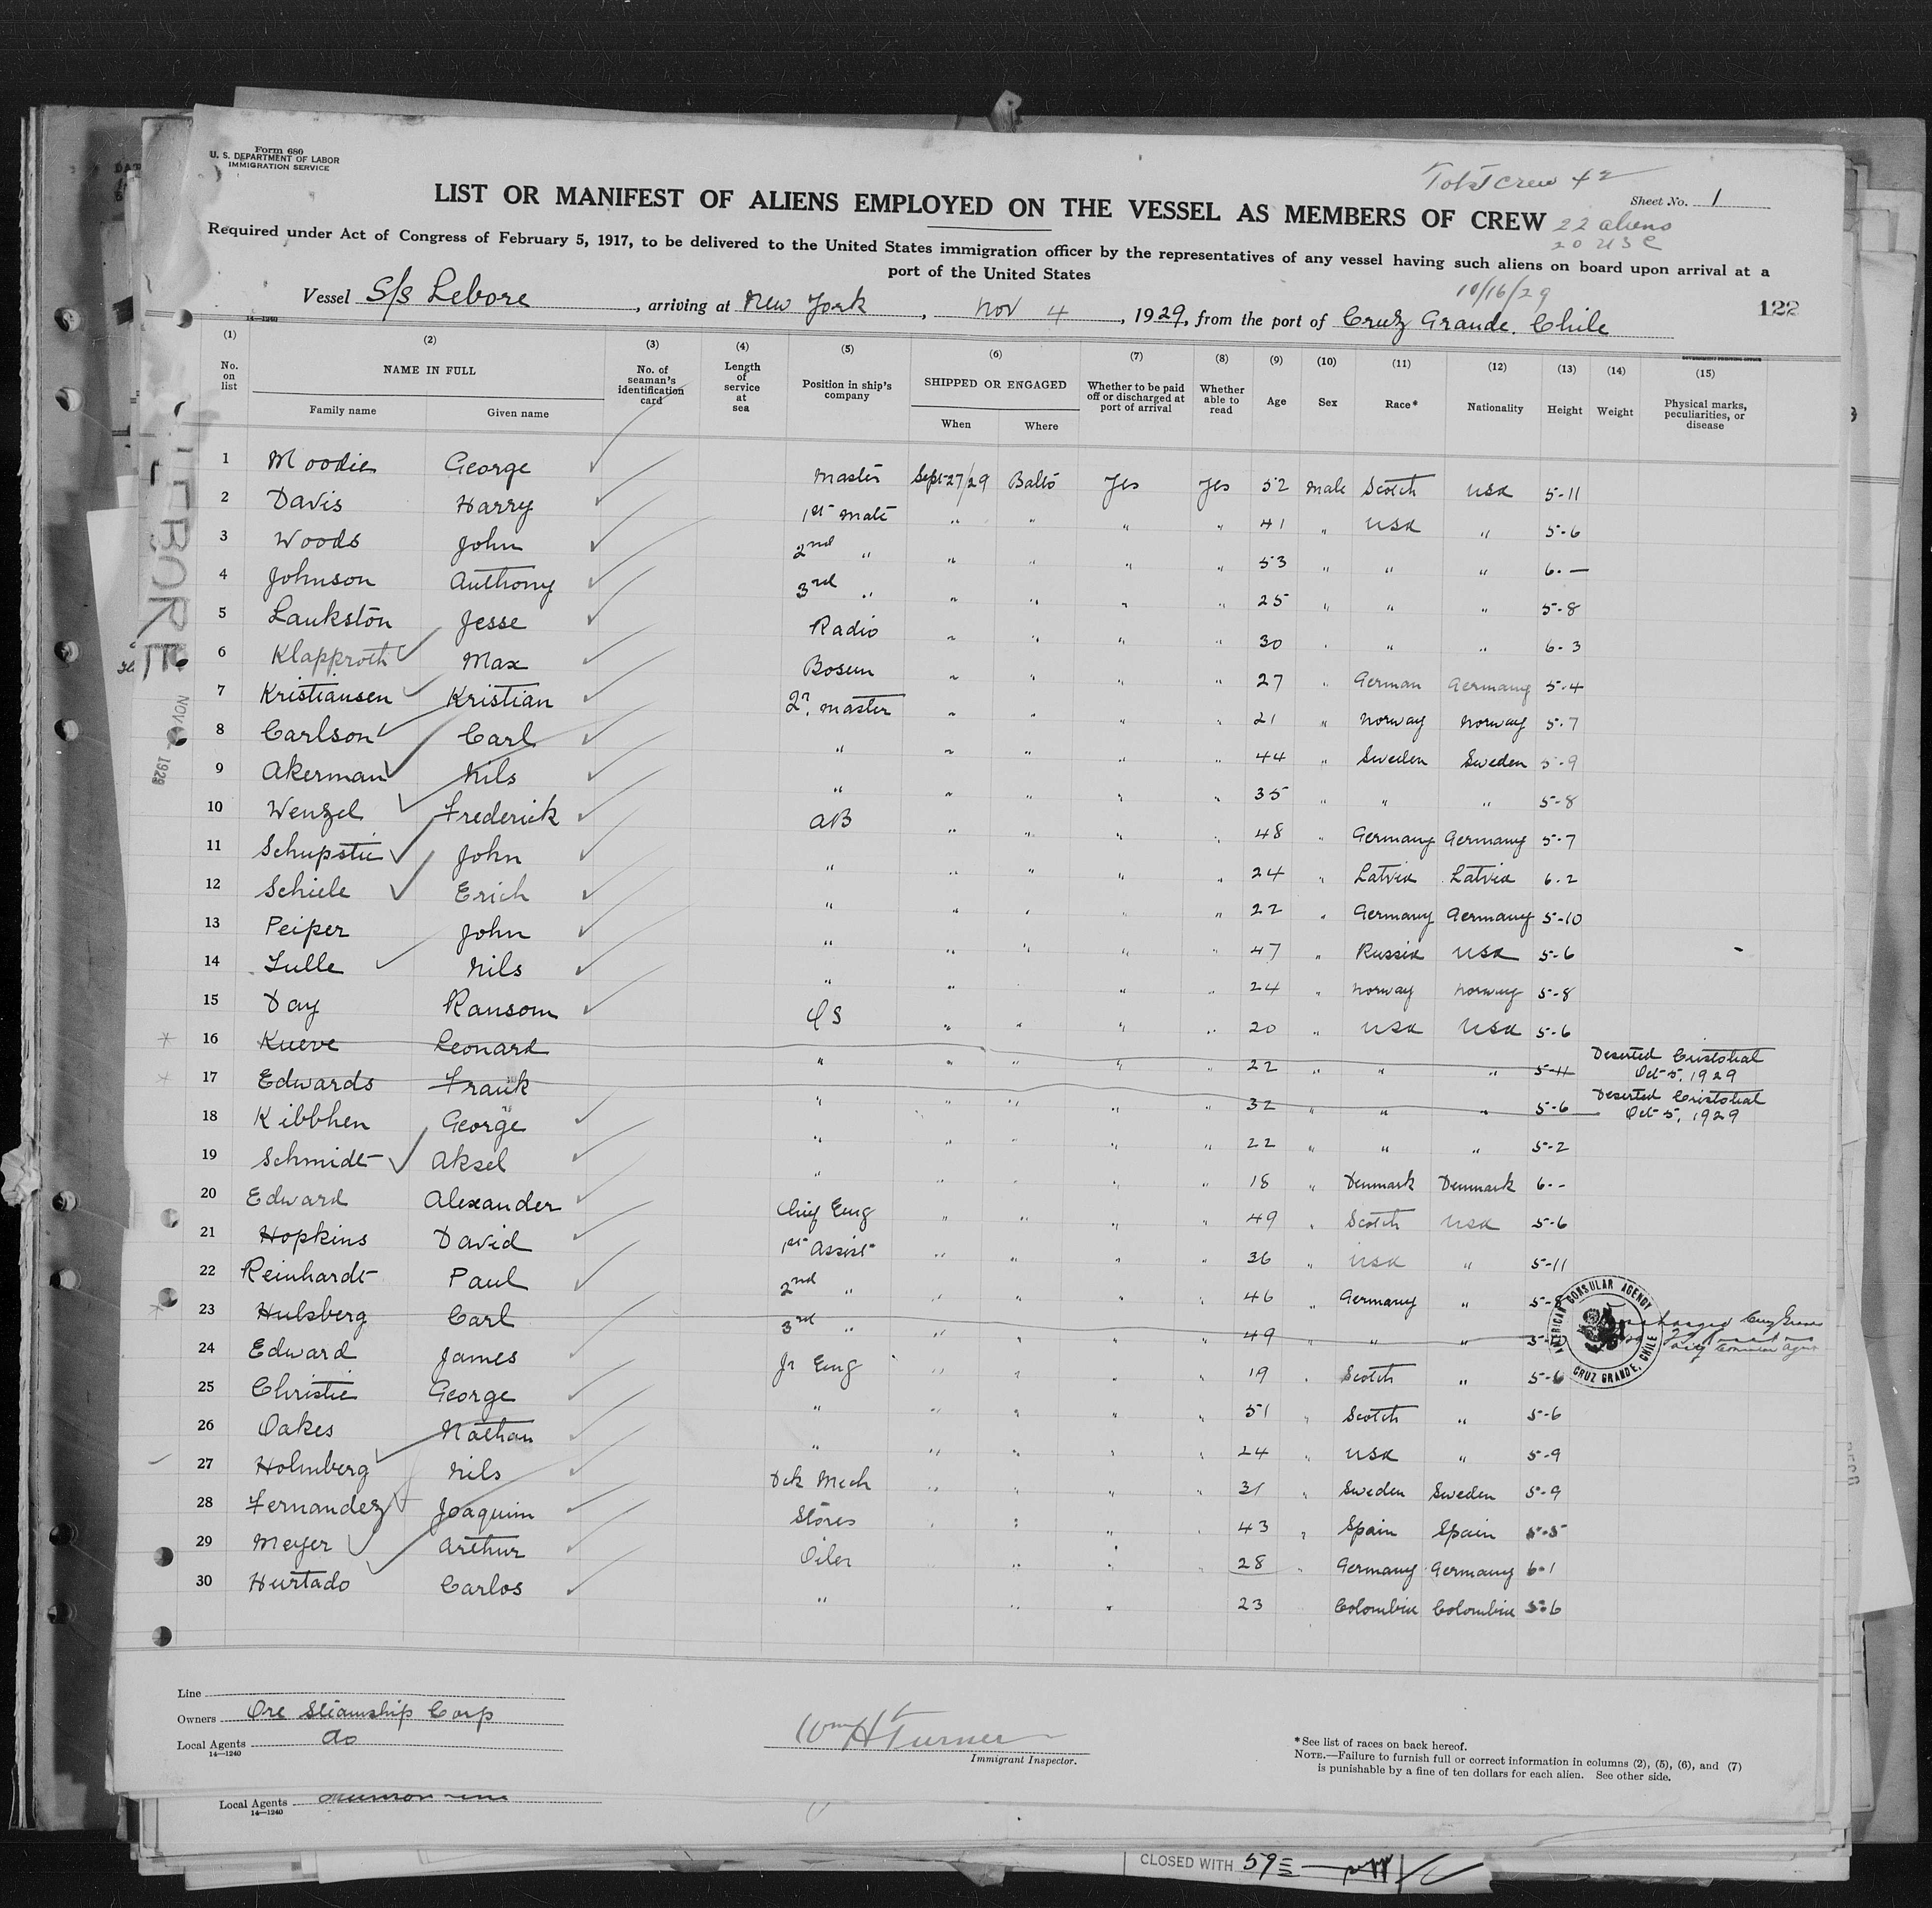 Form 680
U. S. DEPARTMENT OF LABOR
IMMIGRATION SERVICE
Total crew 42
Sheet No. 1
LIST OR MANIFEST OF ALIENS EMPLOYED ON THE VESSEL AS MEMBERS OF CREW
22 aliens
20 USC
Required under Act of Congress of February 5, 1917, to be delivered to the United States immigration officer by the representatives of any vessel having such aliens on board upon arrival at a
port of the United States
10/16/29
Vessel S/S Lebore, arriving at New York, Nov 4, 1929, from the port of Cruz Grande. Chile
122
14—1240
(1) (2) (3) (4) (5) (6) (7) (8) (9) (10) (11) (12) (13) (14) (15)
No. on list NAME IN FULL Family name Given name No. of seaman's identification card Length of service at sea Position in ship's company SHIPPED OR ENGAGED When Where Whether to be paid off or discharged at port of arrival Whether able to read Age Sex Race* Nationality Height Weight Physical marks, peculiarities, or disease
1 Moodie George Master Sept 27/29 Balto Yes Yes 52 Male Scotch USA 5-11
2 Davis Harry 1st Mate " " " " 41 " USA " 5-6
3 Woods John 2nd " " " " " 53 " " " 6.—
4 Johnson Anthony 3rd " " " " " 25 " " " 5-8
5 Lankston Jesse Radio " " " " 30 " " " 6-3
6 Klapproth Max Bosun " " " " 27 " German Germany 5-4
7 Kristiansen Kristian 2r. Master " " " " 21 " Norway Norway 5-7
8 Carlson Carl " " " " " 44 " Sweden Sweden 5-9
9 Akerman Nils " " " " " 35 " " " 5-8
10 Wenzel Frederick AB " " " " 48 " Germany Germany 5-7
11 Schupstie John " " " " " 24 " Latvia Latvia 6-2
12 Schiele Erich " " " " " 22 " Germany Germany 5-10
13 Peiper John " " " " " 47 " Russia USA 5-6
14 Lulle Nils " " " " " 24 " Norway Norway 5-8
15 Day Ransom OS " " " " 20 " USA USA 5-6
16 Kueve Leonard " " " " " 22 " " " 5-11 Deserted Cristobal
Oct 5, 1929
17 Edwards Frank " " " " " 32 " " " 5-6 Deserted Cristobal
Oct 5, 1929
18 Kibbhen George " " " " " 22 " " " 5-2
19 Schmidt Aksel " " " " " 18 " Denmark Denmark 6--
20 Edward Alexander Chief Eng " " " " 49 " Scotch USA 5-6
21 Hopkins David 1st Assist " " " " 36 " USA " 5-11
22 Reinhardt Paul 2nd " " " " " 46 " Germany " 5-8
23 Hulsberg Carl 3rd " " " " " 49 " " "
AMERICAN CONSULAR AGENCY
CRUZ GRANDE, CHILE
24 Edward James Jr Eng " " " " 19 " Scotch " 5-6
25 Christie George " " " " " 51 " Scotch " 5-6
26 Oakes Nathan " " " " " 24 " USA " 5-9
27 Holmberg Nils Dck Mech " " " " 31 " Sweden Sweden 5-9
28 Fernandez Joaquim Stores " " " " 43 " Spain Spain 5-5
29 Meyer Arthur Oiler " " " 28 " Germany Germany 6-1
30 Hurtado Carlos " " " 23 Colombia Colombia 5-6
LEBORE
NOV 1929
Line
Owners Ore Steamship Corp
Local Agents do
14—1240
Wm H Turner
Immigrant Inspector.
*See list of races on back hereof.
NOTE.—Failure to furnish full or correct information in columns (2), (5), (6), and (7)
is punishable by a fine of ten dollars for each alien. See other side.
Local Agents
14—1240
CLOSED WITH 59